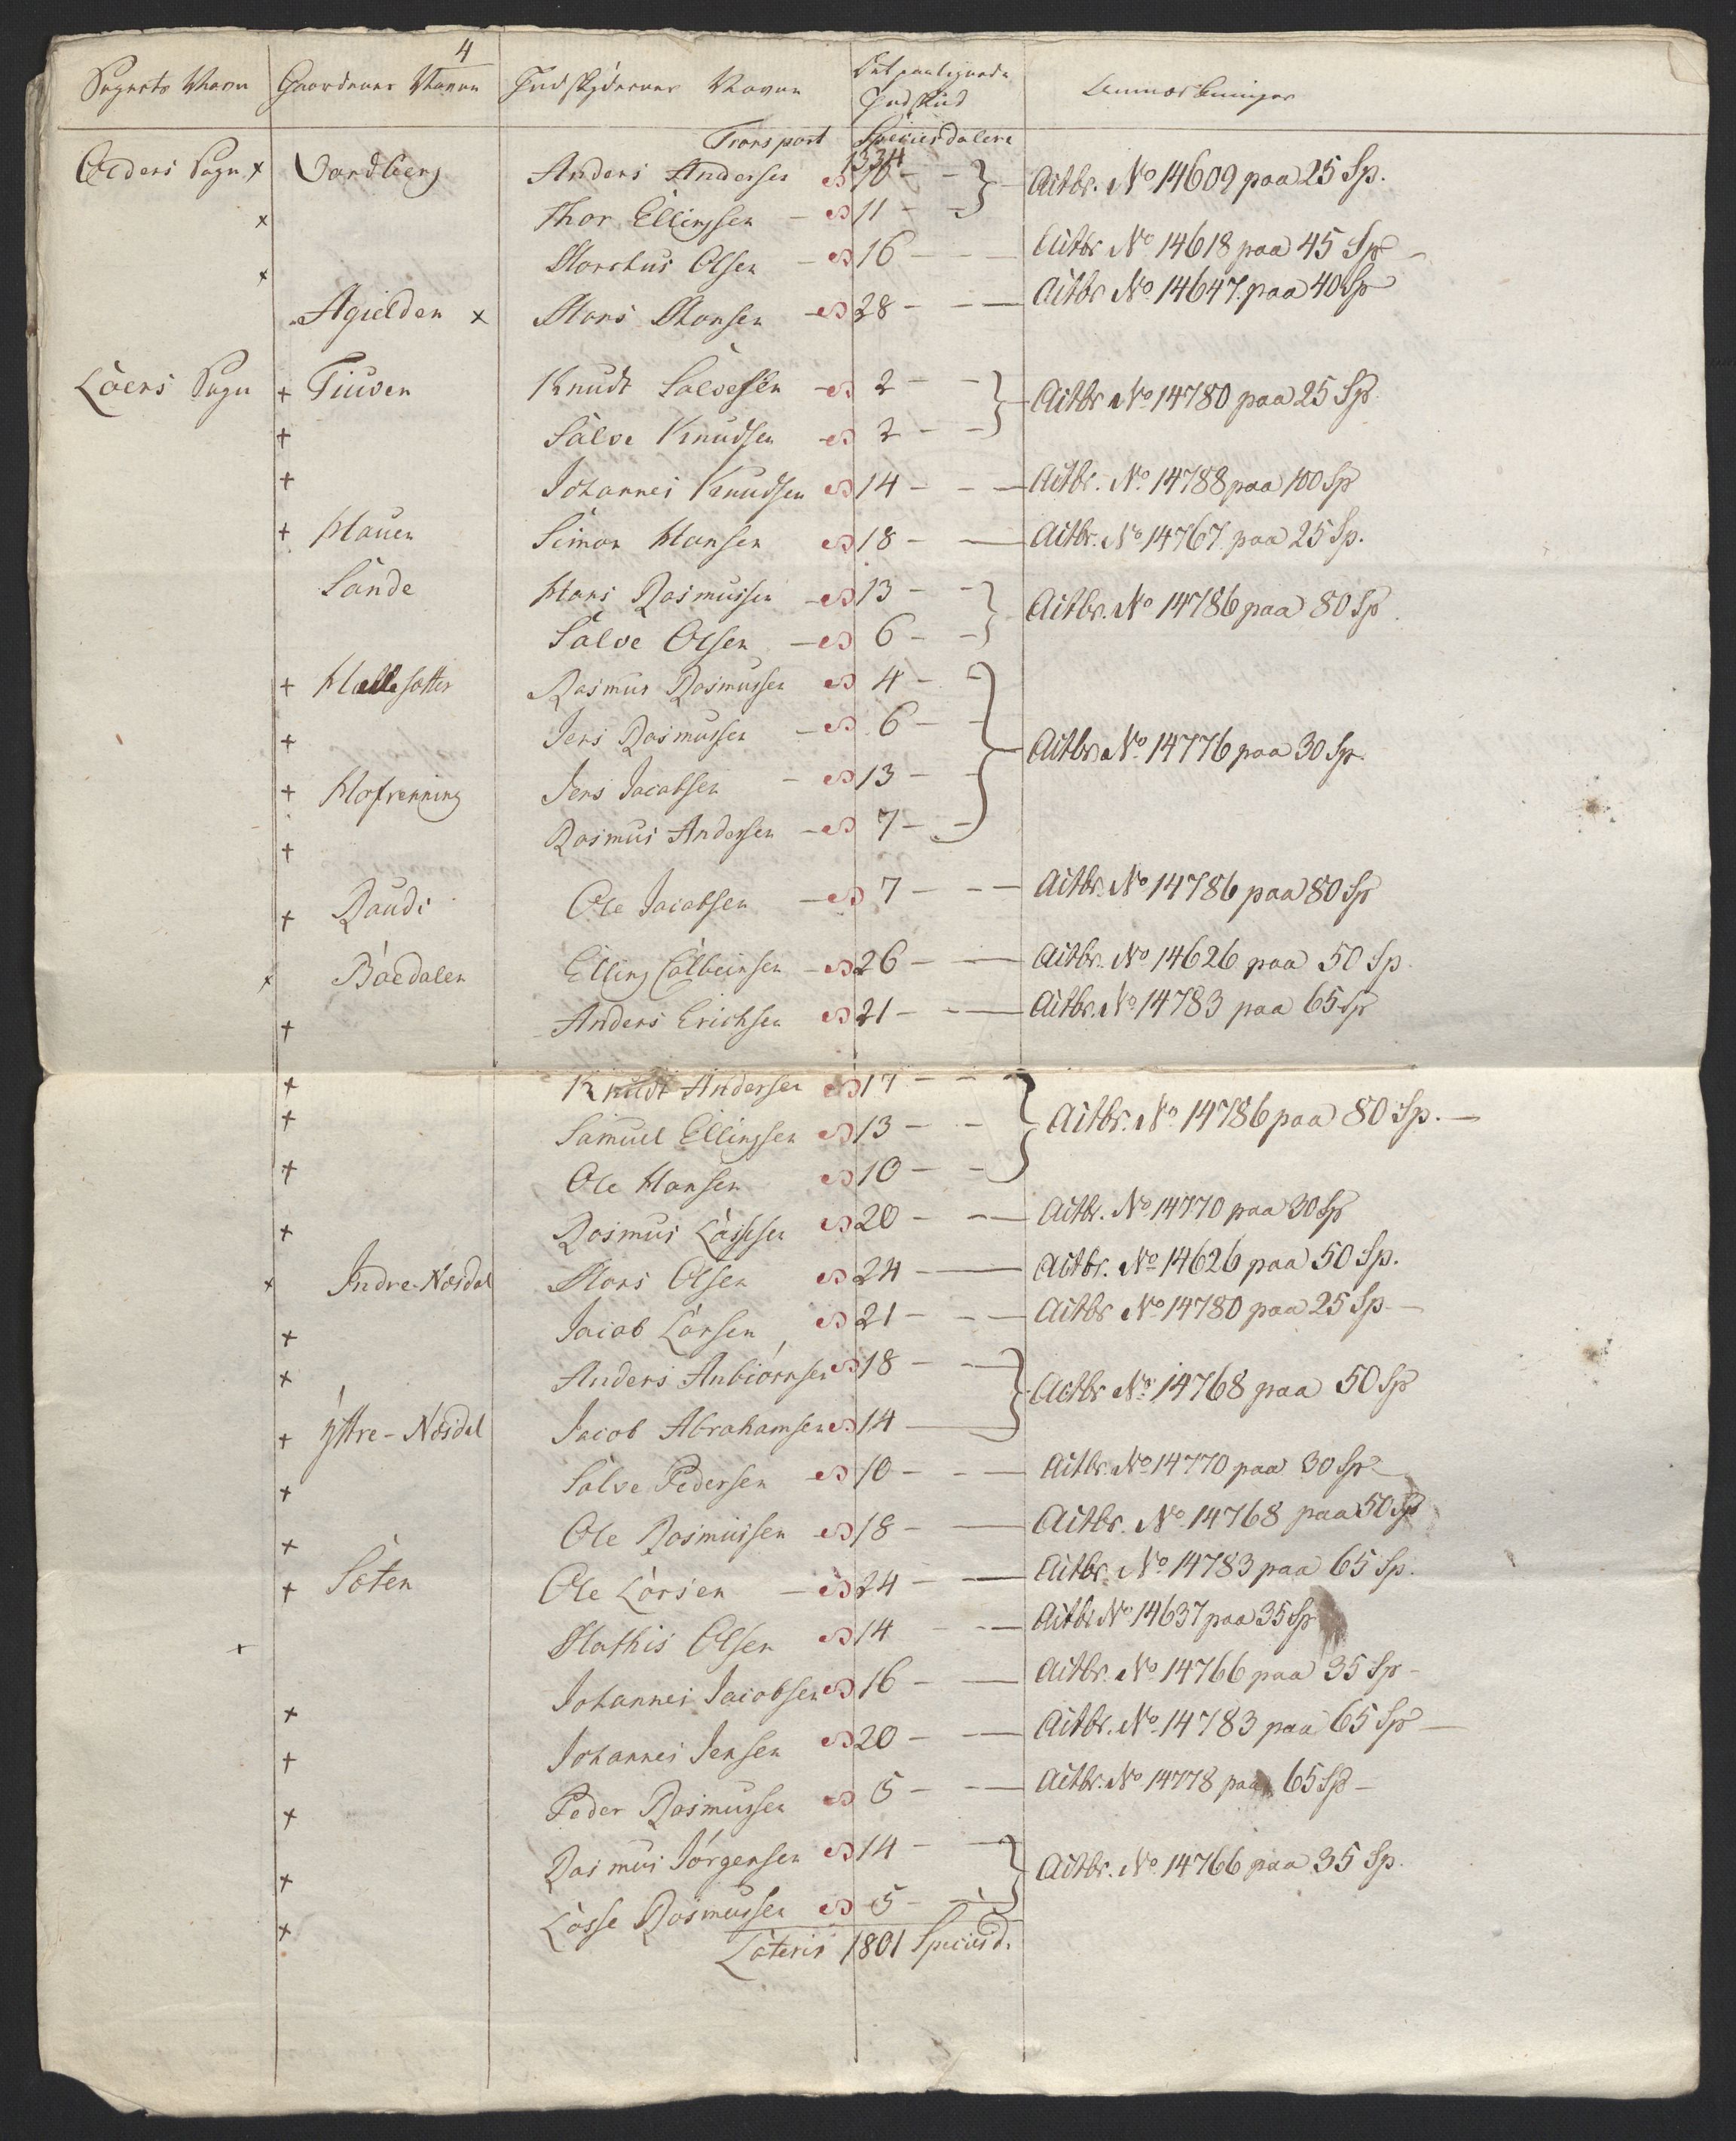 4
Sognets Navn Gaardenes Navne Indskydernes Navne Det paalignede Indskud Anmærkninger
Transport Speciesdalere 1334
Olders Sogn x Vardberg Anders Andersen 10 - - Actbr. No 14609 paa 25 Sp.
x Thor Ellingsen - 11 - -
x Marckus Olsen - 16 - - Actbr No 14618 paa 45 Sp
Agielden x Mons Monsen - 28 - - Actbr No 14647 paa 40 Sp
Loens Sogn + Tiuven Knudt Salvesen - 2 - - Actbr No 14780 paa 25 Sp.
+ Salve Knudsen - 2 - -
+ Johannes Knudsen 14 - - Actbr. No 14788 paa 100 Sp
+ Hauen Simon Hansen 18 - - Actbr. No 14767 paa 25 Sp.
Sande Hans Rasmussen - 13 - - Actbr. No 14786 paa 80 Sp.
Salve Olsen - 6 - -
+ Hellesætter Rasmus Rasmussen 4 -
+ Jens Rasmussen - 6 - -
+ Hofrenning Jens Jacobsen - 13 - - Actbr No 14776 paa 30 Sp.
+ Rasmus Andersen - 7 - -
+ Raudi Ole Jacobsen - 7 - - Actbr. No 14786 paa 80 Sp
x Bødalen Elling Colbeinsen - 26 - Actbr. No 14626 paa 50 Sp.
+ Anders Erichsen 21 - - Actbr. No 14783 paa 65 Sp
+ Knudt Andersen 17 - -
+ Samuel Ellingsen 13 - - Actbr. No 14786 paa 80 Sp. -
+ Ole Hansen 10 - -
x Rasmus Lassesen 20 - - Actbr. No 14770 paa 30 Sp
x Indre-Næsdal Mons Olsen 24 - Actbr. No 14626 paa 50 Sp.
x Jacob Larsen 21 - - Actbr No 14780 paa 25 Sp. -
x Anders Anbiørnsen 18 - - Actbr No 14768 paa 50 Sp
+ Yttre-Næsdal Jacob Abrahamsen 14 -
x Salve Pedersen 10 - - Actbr. No 14770 paa 30 Sp
x Ole Rasmussen 18 - - Actbr. No 14768 paa 50 Sp
+ Sæten Ole Larsen - 24 - - Actbr. No 14783 paa 65 Sp.
x Mathis Olsen 14 - - Actbr No 14637 paa 35 Sp
x Johannes Jacobsen 16 - - Actbr. No 14766 paa 35 Sp -
+ Johannes Jensen 20 - - Actbr. No 14783 paa 65 Sp -
x Peder Rasmussen 5 - - Actbr. No 14778 paa 65 Sp -
x Rasmus Jørgensen 14 - - Actbr. No 14766 paa 35 Sp.
x Lasse Rasmussen 5 - -
Lateris 1801 Speciesd.